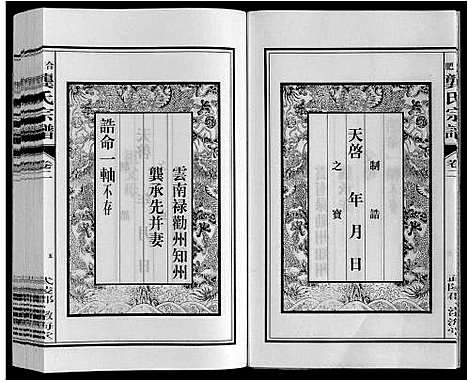 肥
龔氏宗譜
卷二
制誥
天啓 年 月 日
之寶
雲南禄勸州知州
龔承先并妻
誥命一軸不存
合
龔氏宗譜
卷二
五